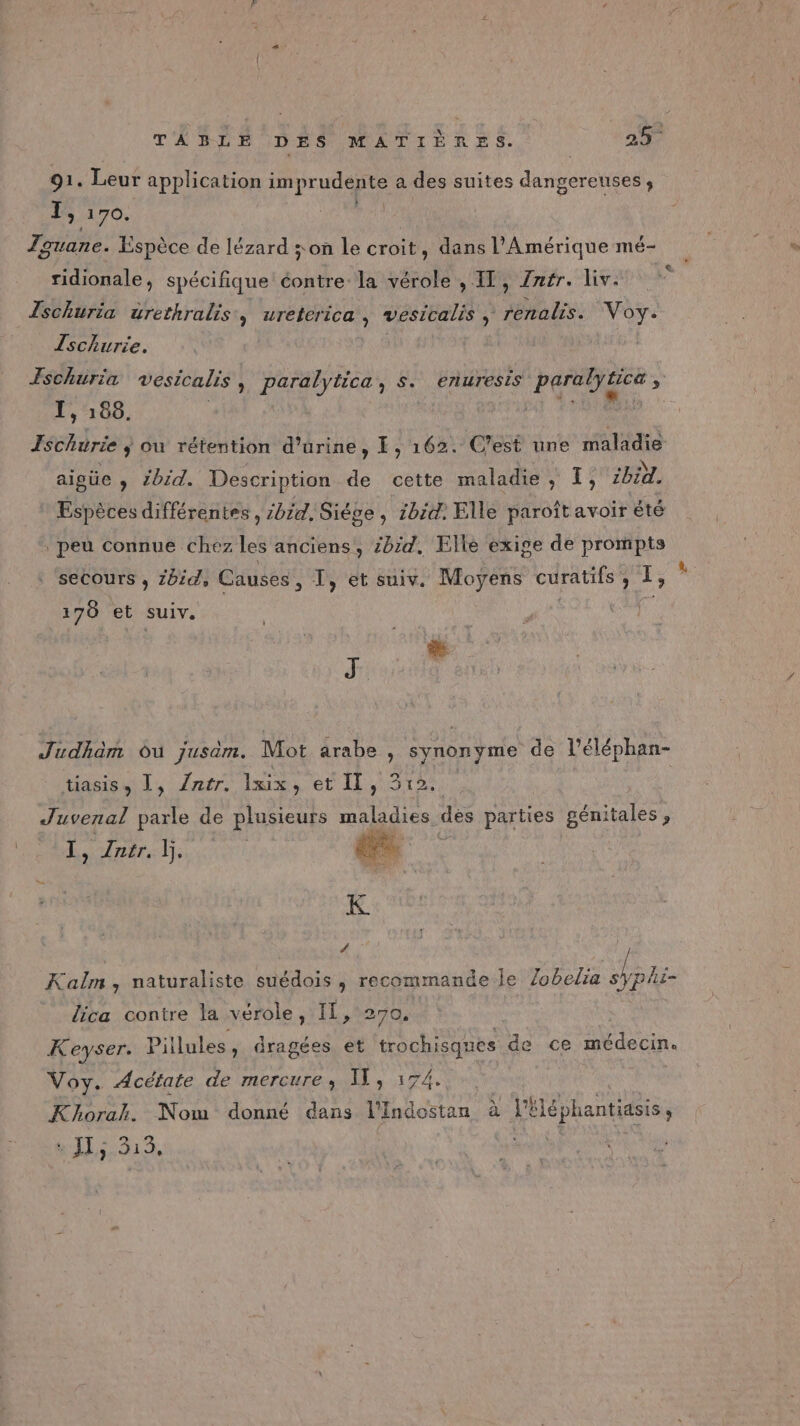 TABLE DES MATIÈRES. 25
91. Leur application imprudente a des suites dangereuses,
I, 170.
Iguane. Espèce de lézard ; on le croit, dans l'Amérique mé-
ridionale, spécifique contre la vérole, II, Intr. liv.
Ischuria urethralis, ureterica, vesicalis, renalis. Voy.
Ischurie.
Ischuria vesicalis, paralytica, s. enuresis paralytica,
I, 188.
Ischurie, ou rétention d'urine, I, 162. C'est une maladie
aigüe, ibid. Description de cette maladie, I, ibid.
Espèces différentes, ibid. Siége, ibid. Elle paroît avoir été
peu connue chez les anciens, ibid. Elle exige de prompts
secours, ibid. Causes, I, et suiv. Moyens curatifs, I,
178 et suiv.
J
Judhàm ou jusàm. Mot arabe, synonyme de l'éléphan-
tiasis, I, Intr. lxix, et II, 312.
Juvenal parle de plusieurs maladies des parties génitales,
I, Intr. lj.
K
Kalm, naturaliste suédois, recommande le lobelia syphi-
lica contre la vérole, II, 270.
Keyser. Pillules, dragées et trochisques de ce médecin.
Voy. Acétate de mercure, II, 174.
Khorah. Nom donné dans l'Indostan à l'éléphantiasis,
II, 313.